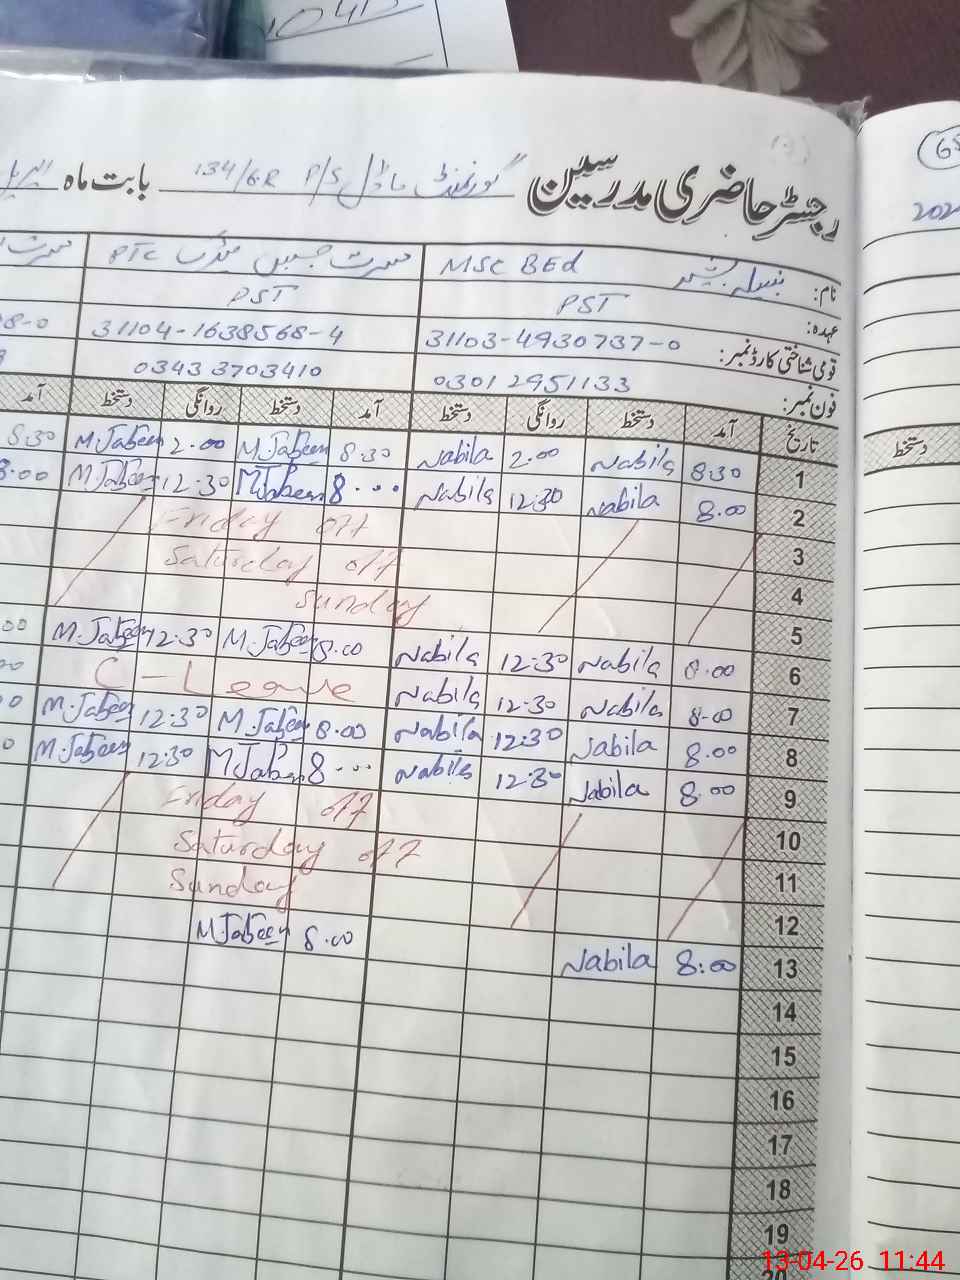 رجسٹر حاضری مدرسین گورنمنٹ ماڈل P/S 134/6R بابت ماہ اپریل
نام: نبیلہ MSC BEd مسرت جبیں PTC
عہدہ: PST PST
قومی شناختی کارڈ نمبر: 31103-4930737-0 31104-1638568-4
فون نمبر: 03012951133 03433703410
تاریخ آمد دستخط روانگی دستخط آمد دستخط روانگی دستخط آمد
1 8:30 Nabila 2.00 Nabila 8.30 M.Jabeen 2.00 M.Jabeen 8:30
2 8.00 Nabila 12:30 Nabila 8... M.Jabeen 12:30 M.Jabeen 8:00
3 Friday off
4 Saturday off
5 Sunday
6 8.00 Nabila 12:30 Nabila 8.00 M.Jabeen 12:30 M.Jabeen 00
7 8-00 Nabila 12:30 Nabila C-Leave
8 8.00 Nabila 12:30 Nabila 8.00 M.Jabeen 12:30 M.Jabeen
9 8.00 Nabila 12:30 Nabila 8... M.Jabeen 12:30 M.Jabeen
10 Friday off
11 Saturday off
12 Sunday
13 8:00 Nabila 8.00 M.Jabeen
14
15
16
17
18
19
20
دستخط
13-04-26 11:44